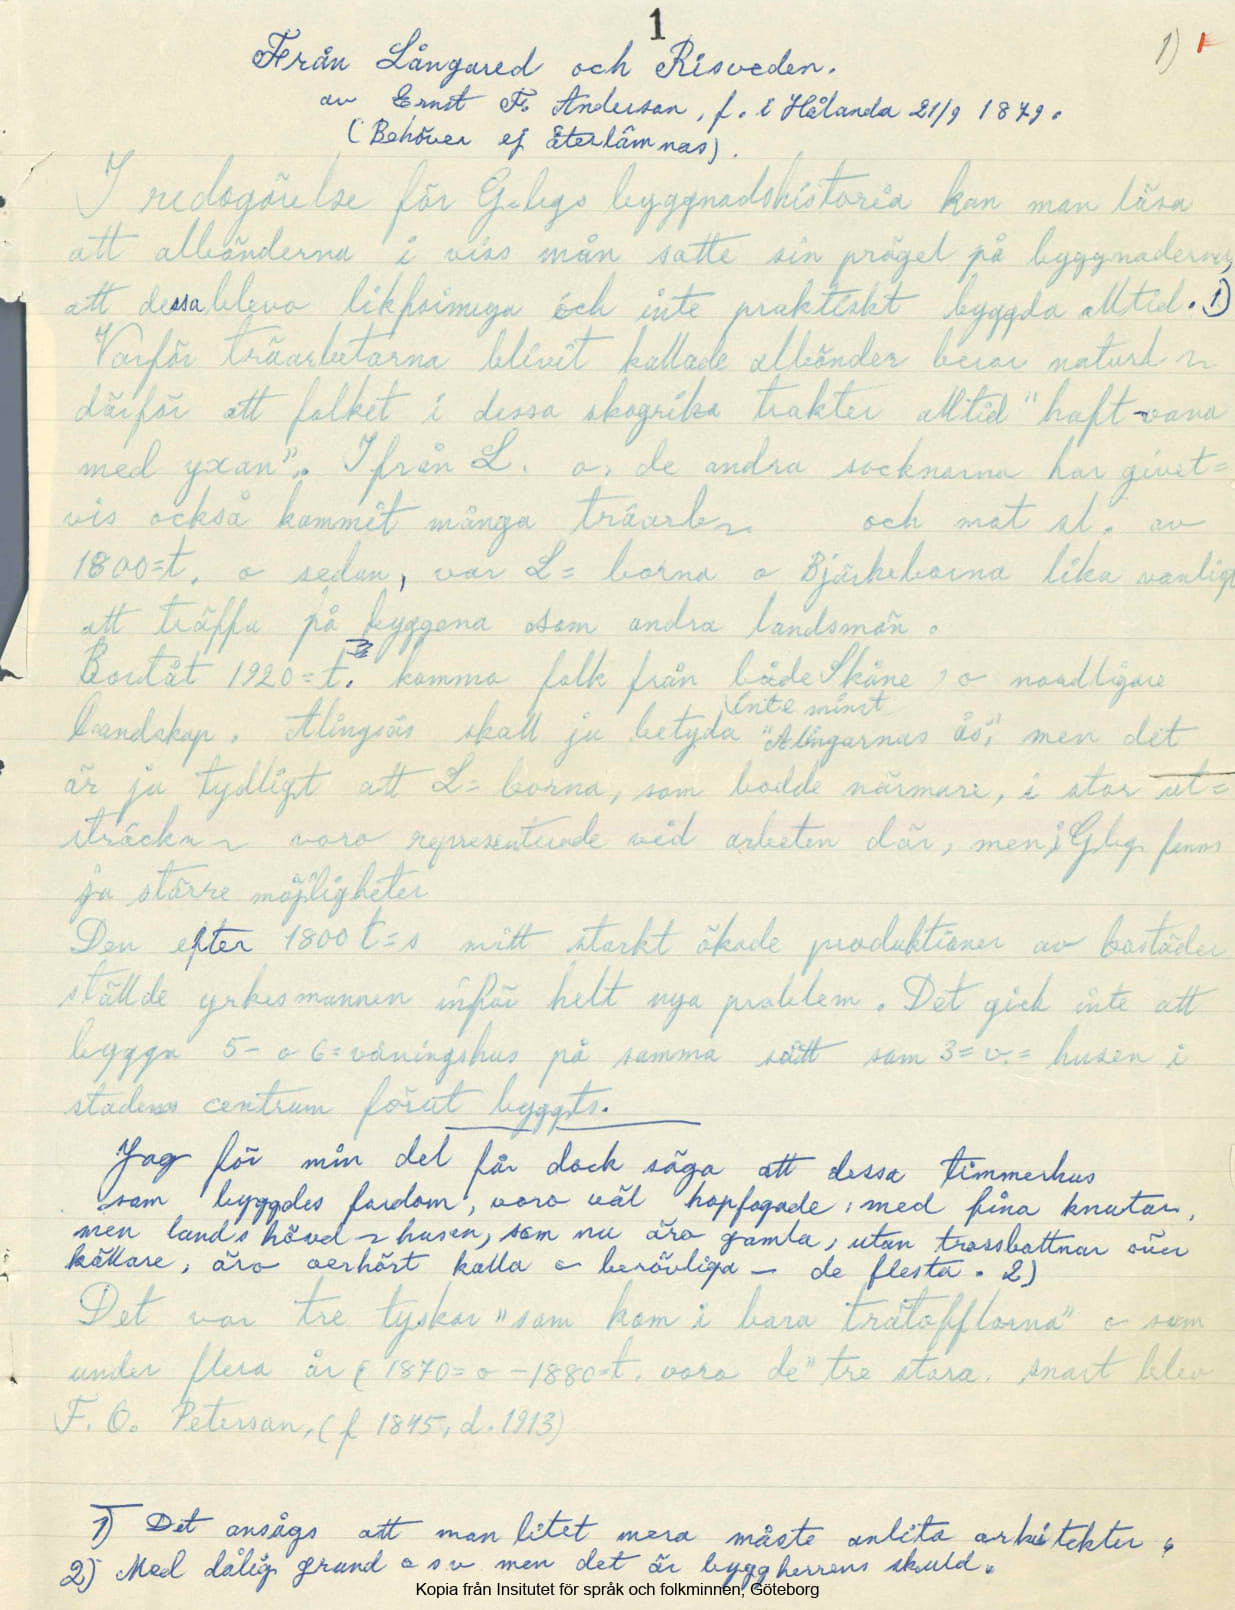 1
1)
Från Långared och Risveden.
av Ernst F. Anderson, f. i Hålanda 21/9 1879.
(Behöver ej återlämnas).
I redogörelse för Gbgs byggnadshistoria kan man läsa
att allbönderna i viss mån satte sin prägel på byggnaderna,
att dessa blevo likformiga och inte praktiskt byggda alltid. 1)
Varför träarbetarna blivit kallade allbönder beror naturl
därför att folket i dessa skogrika trakter alltid "haft vana
med yxan". Ifrån L. o. de andra socknarna har givet=
vis också kommit många träarb och mot sl. av
1800=t. o sedan, var L= borna o Bjärkeborna lika vanligt
att träffa på byggena som andra landsmän.
Bortåt 1920=t. komma folk från både Skåne, o nordligare
inte minst
landskap. Alingsås skall ju betyda "Alingarnas ås", men det
är ju tydligt att L= borna, som bodde närmare, i stor ut=
sträckn voro representerade vid arbeten där, men i Gbg fanns
ju större möjligheter
Den efter 1800 t=s mitt starkt ökade produktionen av bostäder
ställde yrkesmannen inför helt nya problem. Det gick inte att
bygga 5- o 6=våningshus på samma sätt som 3= v.= husen i
stadens centrum förut byggts.
Jag för min del får dock säga att dessa timmerhus
som byggdes fordom, voro väl hopfogade, med fina knutar,
men landshövd husen, som nu äro gamla, utan trossbottnar över
källare, äro oerhört kalla o berövliga - de flesta. 2)
Det var tre tyskar "som kom i bara trätofflorna" o som
under flera år ( 1870= o -1880=t. voro de "tre stora. snart blev
F. O. Peterson, (f 1845, d. 1913)
1) Det ansågs att man litet mera måste anlita arkitekter.
2) Med dålig grund o s v men det är byggherrens skuld.
Kopia från Insitutet för språk och folkminnen, Göteborg